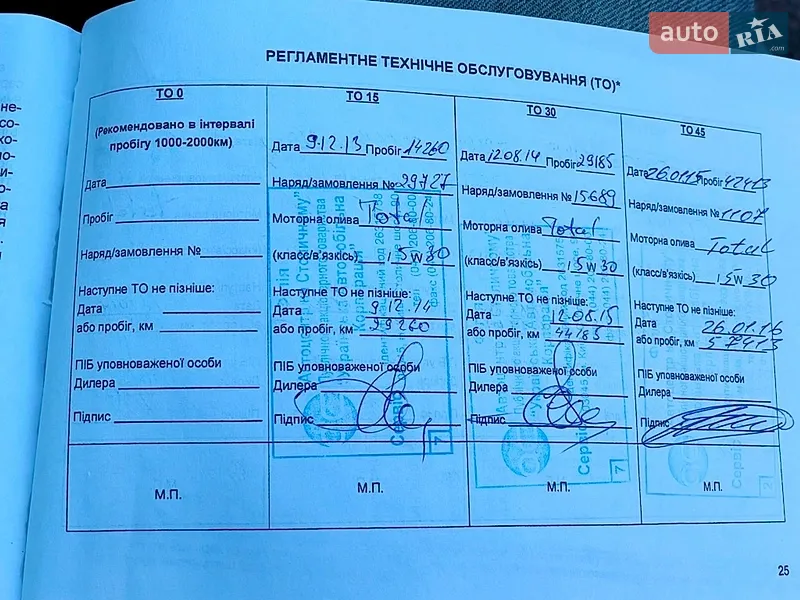 auto RIA .com
РЕГЛАМЕНТНЕ ТЕХНІЧНЕ ОБСЛУГОВУВАННЯ (ТО)*
не-
со-
ко-
ТО 0
(Рекомендовано в інтервалі
пробігу 1000-2000км)
Дата
Пробіг
Наряд/замовлення №
Наступне ТО не пізніше:
Дата
або пробіг, км
ПІБ уповноваженої особи
Дилера
Підпис
М.П.
ТО 15
Дата 9.12.13 Пробіг 14260
Наряд/замовлення № 29727
Моторна олива Total
(класс/в'язкість) 5W30
Наступне ТО не пізніше:
Дата 9.12.14
або пробіг, км 29260
ПІБ уповноваженої особи
Дилера
Підпис
М.П.
ТО 30
Дата 12.08.14 Пробіг 29185
Наряд/замовлення № 15689
Моторна олива Total
(класс/в'язкість) 5W30
Наступне ТО не пізніше:
Дата 12.08.15
або пробіг, км 44185
ПІБ уповноваженої особи
Дилера
Підпис
М.П.
ТО 45
Дата 26.01.15 Пробіг 42413
Наряд/замовлення № 1107
Моторна олива Total
(класс/в'язкість) 5W30
Наступне ТО не пізніше:
Дата 26.01.16
або пробіг, км 57413
ПІБ уповноваженої особи
Дилера
Підпис
М.П.
Сервіс 7
Сервіс 7
Сервіс 2
25